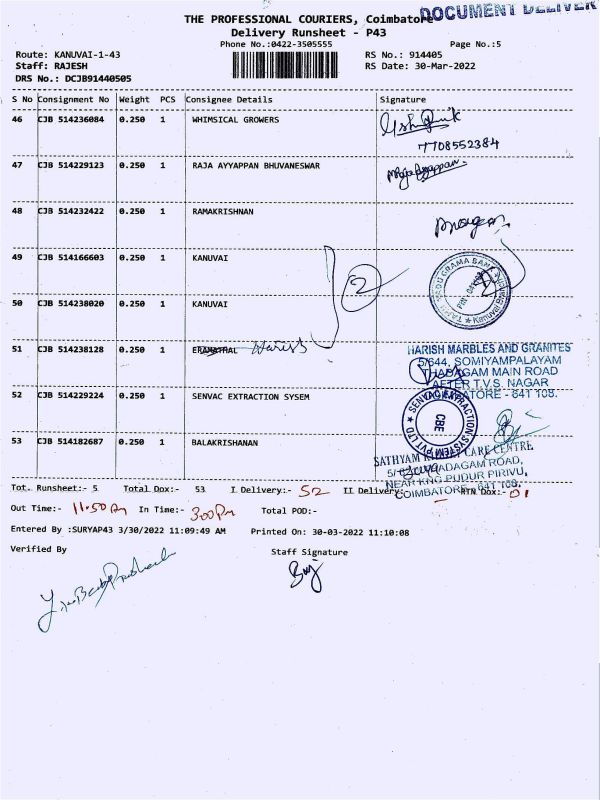 THE PROFESSIONAL COURIERS, Coimbatore
DOCUMENT DELIVER
Delivery Runsheet - P43
Phone No.:0422-3505555
Page No.:5
Route: KANUVAI-1-43
RS No.: 914405
Staff: RAJESH
RS Date: 30-Mar-2022
DRS No.: DCJB91440505
S No Consignment No Weight PCS Consignee Details Signature
46 CJB 514236084 0.250 1 WHIMSICAL GROWERS
7708552384
47 CJB 514229123 0.250 1 RAJA AYYAPPAN BHUVANESWAR
48 CJB 514232422 0.250 1 RAMAKRISHNAN
49 CJB 514166603 0.250 1 KANUVAI
2
50 CJB 514238020 0.250 1 KANUVAI
51 CJB 514238128 0.250 1 ERAMATHAL Harish
HARISH MARBLES AND GRANITES
5/644, SOMIYAMPALAYAM
THADAGAM MAIN ROAD
AFTER T.V.S. NAGAR
COIMBATORE - 641 108.
52 CJB 514229224 0.250 1 SENVAC EXTRACTION SYSEM
SENVAC EXTRACTION SYSTEM PVT LTD
CBE
53 CJB 514182687 0.250 1 BALAKRISHANAN
SATHYAM CARE CENTRE
THADAGAM ROAD,
NEAR KNG PUDUR PIRIVU,
COIMBATORE - 641 108.
Tot. Runsheet:- 5 Total Dox:- 53 I Delivery:- 52 II Delivery:- RTN Dox:- 01
Out Time:- 11.50 Am In Time:- 3.00 Pm Total POD:-
Entered By :SURYAP43 3/30/2022 11:09:49 AM Printed On: 30-03-2022 11:10:08
Verified By Staff Signature